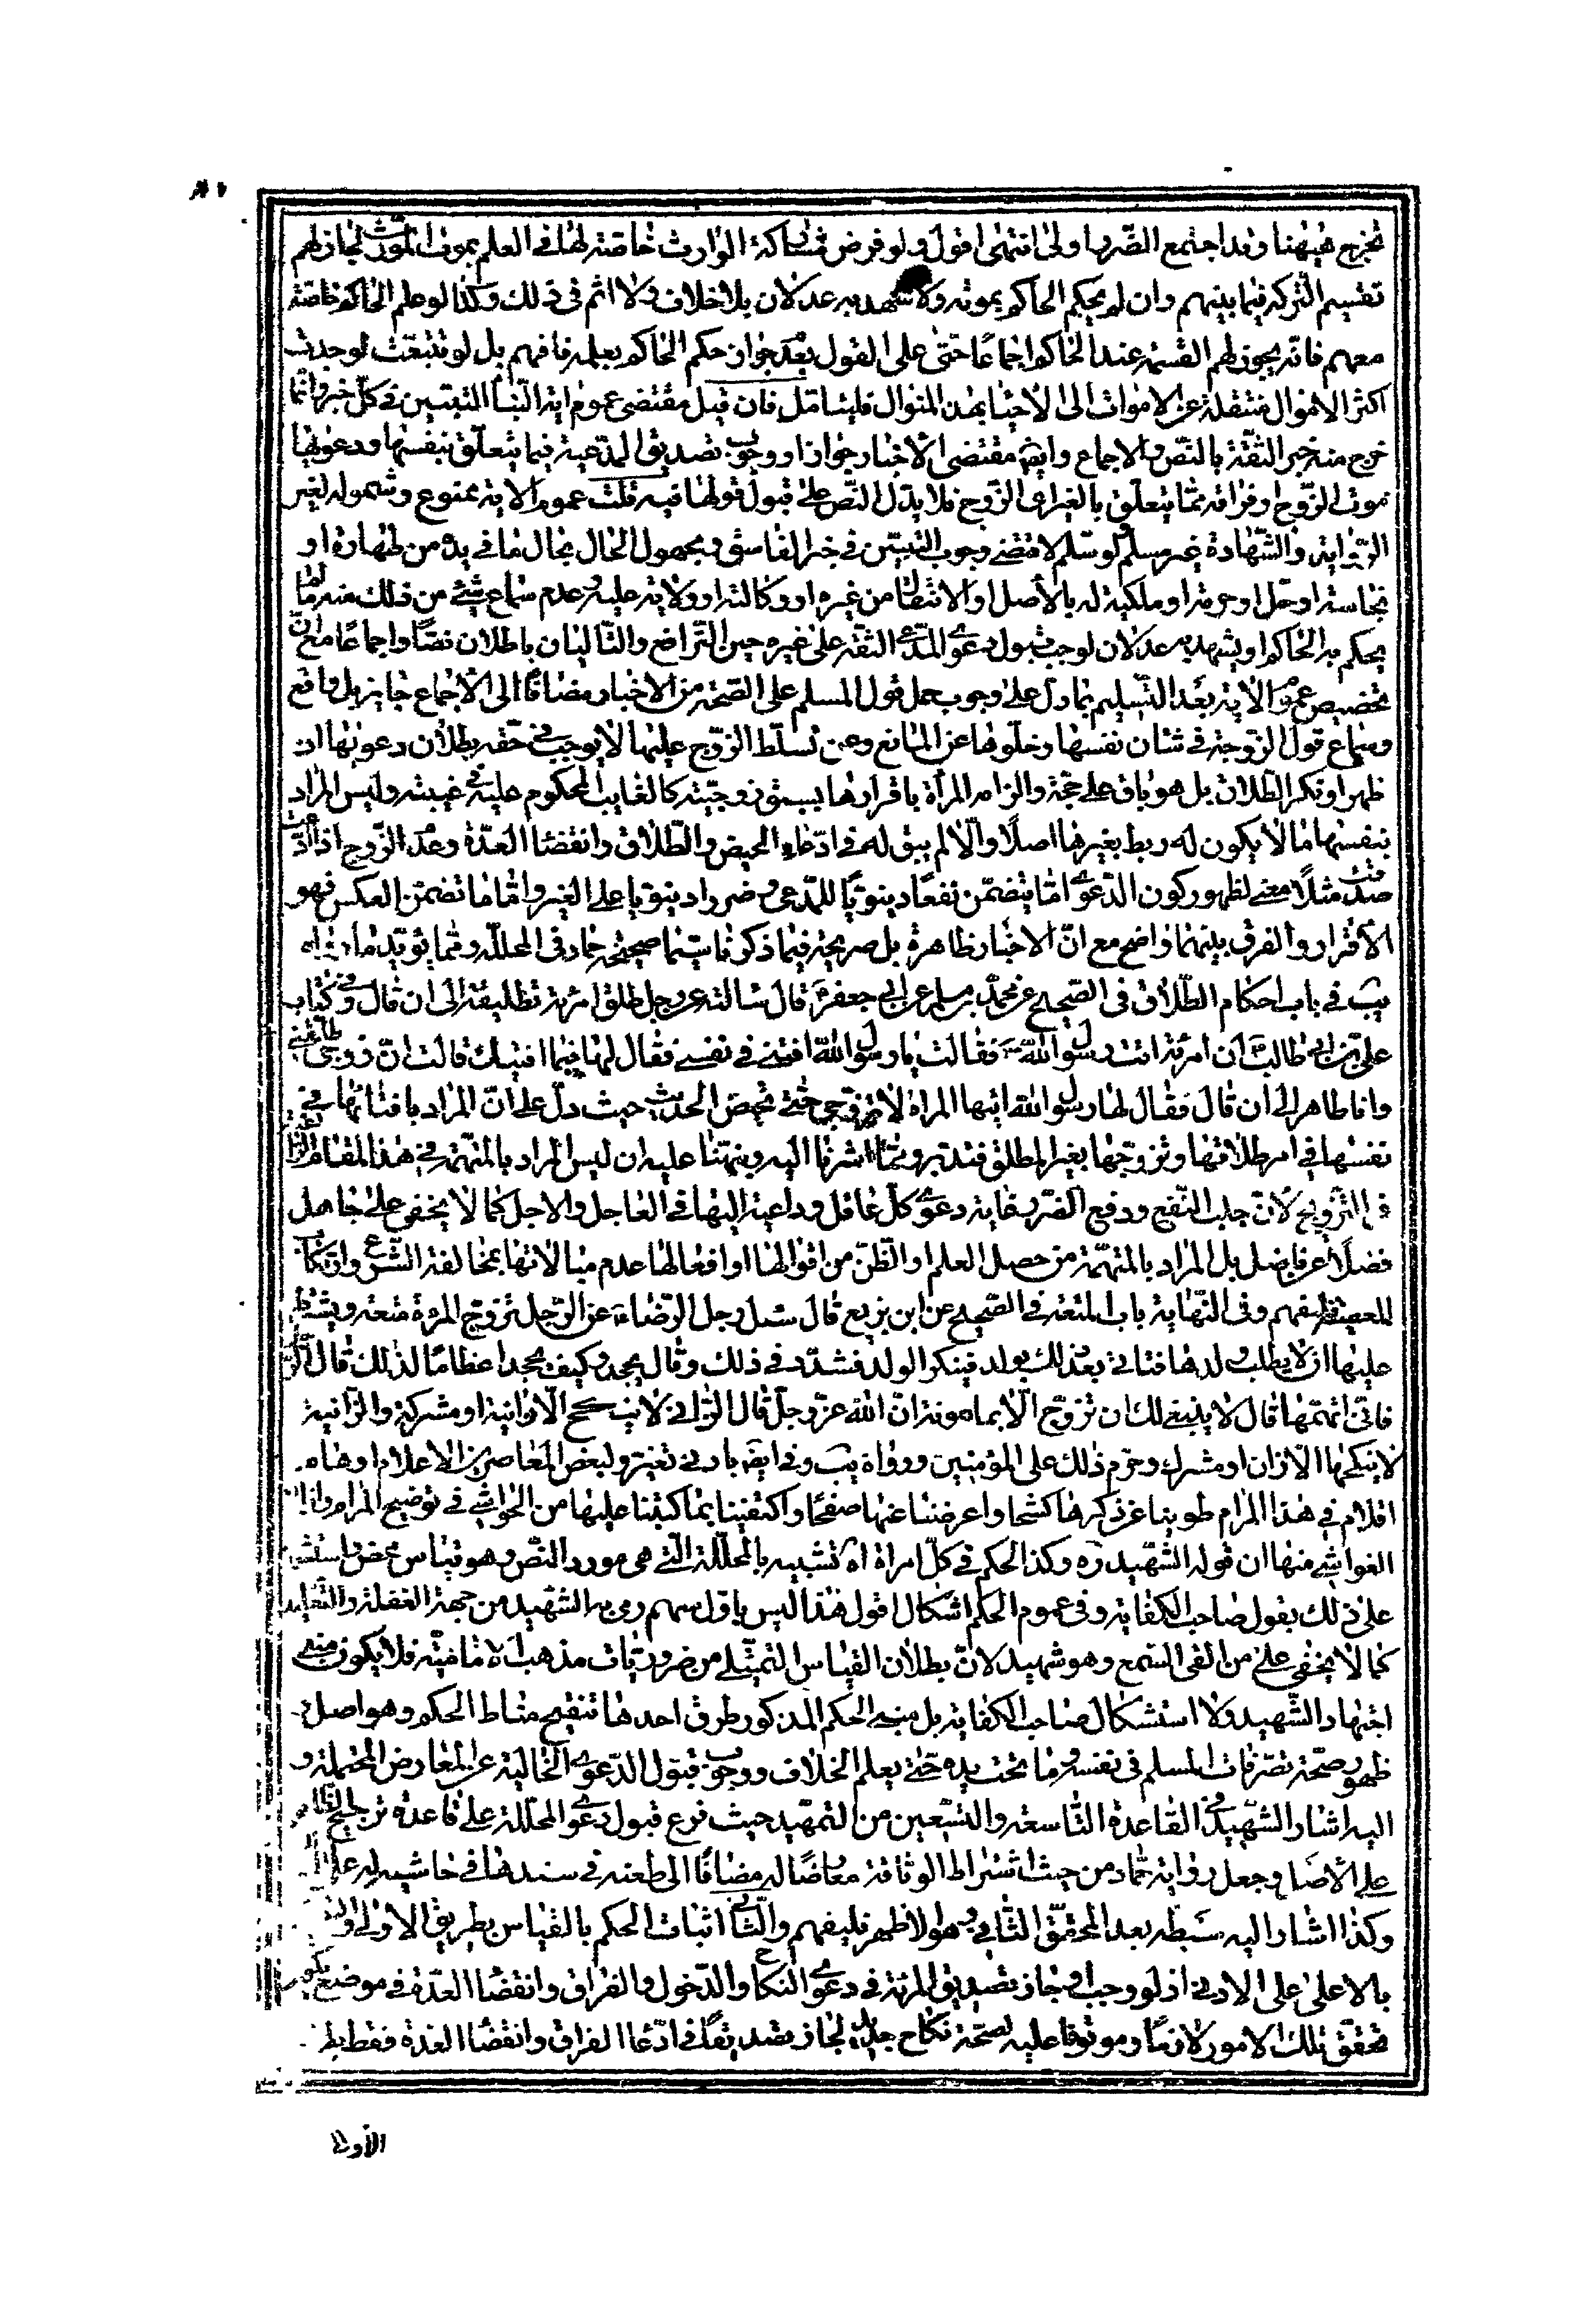 تخرج هيهنا وقد اجتمع الضربا ولى انتهى اقول ولو فرض مشاركة الوارث خاصته لها في العلم بموت المورث لجاز لهم
تقسيم التركه فيما بينهم وان لم يحكم الحاكم بموته ولا شهد به عدلان بلا خلاف ولا اثم في ذلك وكذا لو علم الحاكم خاصته
معهم فانه يجوز لهم القسمة عند الحاكم اجماعًا حتى على القول بعدم جواز حكم الحاكم بعلمه فافهم بل لو تتبعت لوجدت
اكثر الاموال منتقلة عن الاموات الى الاحياء بهذا المنوال فليتامل فان قيل مقتضى عموم اية النبأ التبيين في كل خبر وانما
خرج منه خبر الثقة بالنص والاجماع وايضا مقتضى الاخبار جوازا ووجوب تصديق المدعية فيما يتعلق بنفسها ودعويها
موت الزوج او فراقه مما يتعلق بالغير اعى الزوج فلا يدل النص على قبول قولها فيه قلت عموم الاية ممنوع وشموله لغير
الرواية والشهادة غير مسلم ولو سلم لاقتضى وجوب التبين في خبر الفاسق ومجهول الحال بحال ما في يده من طهارة او
نجاسة او حل او حرمة او ملكية له بالاصل او الانتقال من غيره او وكالته او ولايته عليه وعدم سماع شئ من ذلك منه لما لم
يحكم به الحاكم او يشهد به عدلان لوجب قبول دعوى المدعى الثقة على غيره حين الترافع والتاليان باطلان نصًا واجماعًا مع ان
تخصيص عموم الاية بعد التسليم بما دل على وجوب حمل قول المسلم على الصحة من الاخبار مضافًا الى الاجماع جايز بل واقع
وسماع قول الزوجة في شان نفسها وخلوها عن المانع وعن تسلط الزوج عليها لا يوجب في حقه بطلان دعويها ان
ظهر او نكر الطلاق بل هو باق على حجة والزام المرأة باقرارها بسبق زوجيته كالغايب المحكوم عليه في غيبته وليس المراد
بنفسها ما لا يكون له ربط بغيرها اصلًا والّا لم يبق له في ادعاء الحيض والطلاق وانقضاء العدة وعد الزوج اذا ادعت
صدقت مثلًا معنى لظهور كون الدعوى امّا يتضمن نفعًا دينويًا للمدعى وضررا دينويا على الغير وامّا ما تضمن العكس فهو
الأقرار والفرق بينهما واضح مع انّ الاخبار ظاهرة بل صريحة فيما ذكر نا سيما صحيحة حماد في المحلله ومما يؤيد ما
يب في باب احكام الطلاق في الصحيح عن محمد بن مسلم عن ابي جعفر قال سالته عن رجل طلق امرئته تطليقة الى ان قال وفي كتاب
على بن ابي طالب ان امرئة اتت رسول الله فقالت يا رسول الله افتنى في نفسى فقال لها فيما افتيك قالت ان زوجى طلقنى
وانا طاهر الى ان قال فقال لها رسول الله ايتها المراة لا تتزوجى حتى تحيض الحديث حيث دل على ان المراد بافتائها في
نفسها في امر طلاقها وتزوجها بغير المطلق فتدبر ومما اشرنا اليه وينبهنا عليه ان ليس المراد بالمتهمة في هذا المقام
في التزويج لأن جلب النفع ودفع الضرر غاية دعوى كل عاقل وداعية اليها في العاجل والاجل كما لا يخفى على جاهل
فضلًا عن فاضل بل المراد بالمتهمة من حصل العلم او الظن من اقوالها او افعالها عدم مبالاتها بمخالفة الشرع وارتكاب
المعصية فليفهم وفي النهاية باب المتعة في الصحيح عن ابن بزيع قال سئل رجل الرضا عن الرجل تزوج المرءة متعة ويشترط
عليها ان لا يطلب ولدها فتاتى بعد ذلك بولد فينكر الولد فشدد في ذلك وقال يجحد وكيف يجحد اعظامًا لذلك قال
فانى اتهمها قال لا ينبغى لك ان تزوج الّا بمامونة انّ الله عز وجلّ قال الزانى لا ينكح الّا زانية او مشركة والزانية
لا ينكحها الّا زان او مشرك وحرم ذلك على المؤمنين ورواه يب وفي ايضا بادنى تغيير ولبعض المعاصرين الاعلام اوهام
اقلام في هذا المرام طوينا عن ذكرها كشحا واعرضنا عنها صفحًا واكتفينا بما كتبنا عليها من الحواشى في توضيح المرام
الغواشى منها ان قوله الشهيد ره وكذا الحكم في كل امراة اه تشبيه بالمحللة التى هى مورد النص وهو قياس محض واستشهد
على ذلك بقول صاحب الكفاية وفي عموم الحكم اشكال اقول هذا ليس باول سهم رمى به الشهيد من جهة الغفلة والتقليد
كما لا يخفى على من القى السمع وهو شهيد لان بطلان القياس التمثيلى من ضروريات مذهب الامامية فلا يكون مبنى
اجتهاد الشهيد ولا استشكال صاحب الكفاية بل مبنى الحكم المذكور طرق احدها تنقيح مناط الحكم وهو اصل
ظهور صحة تصرفات المسلم في نفسه وما تحت يده حتى يعلم الخلاف ووجوب قبول الدعوى الخالية عن المعارض المحتملة و
اليه اشار الشهيد في القاعدة التاسعة والتسعين من التمهيد حيث فرع قبول دعوى المحللة على قاعدة ترجيح الظاهر
على الأصل وجعل رواية حماد من حيث اشتراط الوثاقة معاضًا له مضافًا الى طعنه في سندها في حاشيه له
وكذا اشار اليه سبطه بعد المحقق الثانى وهو الاظهر فليفهم والثانى اثبات الحكم بالقياس بطريق الاولى
بالاعلى على الادنى اذ لو وجب او جاز تصديق المرئة في دعوى النكاح والدخول والفراق وانقضاء العدة في موضع يكون
تحقق تلك الامور لازمًا وموقوفا عليه لصحة نكاح جديد لجاز تصديقها في ادعاء الفراق وانقضاء العدة فقط
الأولى